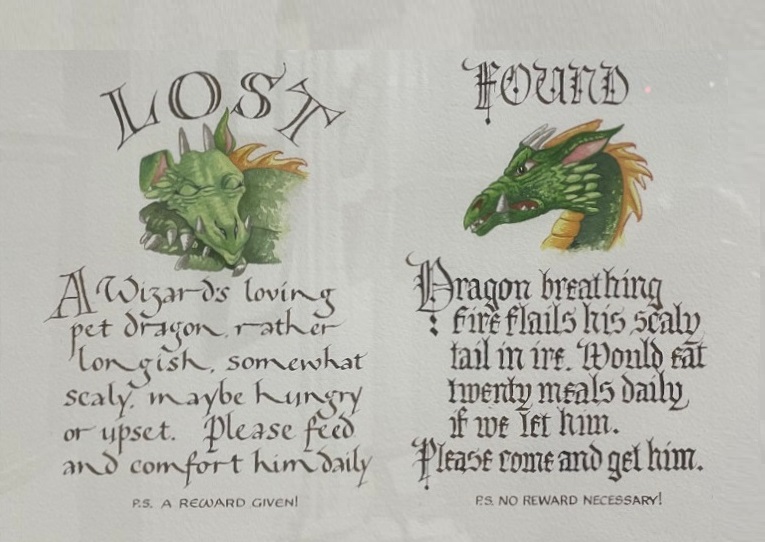 LOST
A Wizard's loving
pet dragon, rather
longish, somewhat
scaly, maybe hungry
or upset. Please feed
and comfort him daily
P.S. A REWARD GIVEN!
FOUND
Dragon breathing
fire flails his scaly
tail in ire. Would eat
twenty meals daily
if we let him.
Please come and get him.
P.S. NO REWARD NECESSARY!